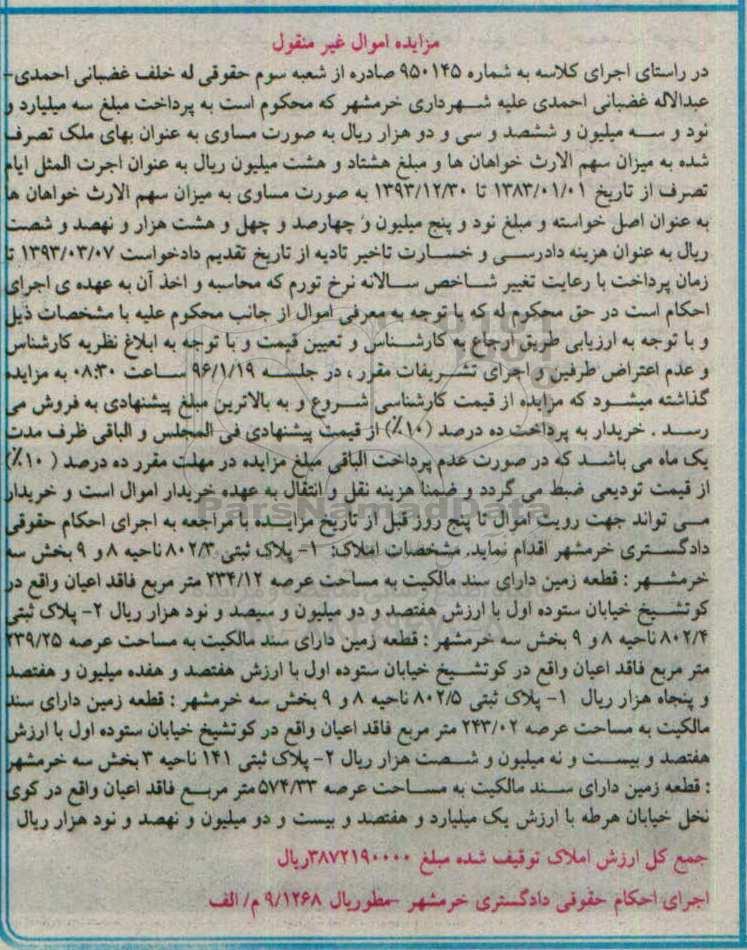 مزایده اموال غیر منقول
در راستای اجرای کلاسه به شماره ۹۵۰۱۴۵ صادره از شعبه سوم حقوقی له خلف غضبانی احمدی-
عبدالاله غضبانی احمدی علیه شهرداری خرمشهر که محکوم است به پرداخت مبلغ سه میلیارد و
نود و سه میلیون و ششصد و سی و دو هزار ریال به صورت مساوی به عنوان بهای ملک تصرف
شده به میزان سهم الارث خواهان ها و مبلغ هشتاد و هشت میلیون ریال به عنوان اجرت المثل ایام
تصرف از تاریخ ۱۳۸۳/۰۱/۰۱ تا ۱۳۹۳/۱۲/۳۰ به صورت مساوی به میزان سهم الارث خواهان ها
به عنوان اصل خواسته و مبلغ نود و پنج میلیون و چهارصد و چهل و هشت هزار و نهصد و شصت
ریال به عنوان هزینه دادرسی و خسارت تاخیر تادیه از تاریخ تقدیم دادخواست ۱۳۹۳/۰۳/۰۷ تا
زمان پرداخت با رعایت تغییر شاخص سالانه نرخ تورم که محاسبه و اخذ آن به عهده ی اجرای
احکام است در حق محکوم له که با توجه به معرفی اموال از جانب محکوم علیه با مشخصات ذیل
و با توجه به ارزیابی طریق ارجاع به کارشناس و تعیین قیمت و با توجه به ابلاغ نظریه کارشناس
و عدم اعتراض طرفین و اجرای تشریفات مقرر ، در جلسه ۹۶/۱/۱۹ ساعت ۰۸:۳۰ به مزایده
گذاشته میشود که مزایده از قیمت کارشناسی شروع و به بالاترین مبلغ پیشنهادی به فروش می
رسد . خریدار به پرداخت ده درصد (۱۰٪) از قیمت پیشنهادی فی المجلس و الباقی ظرف مدت
یک ماه می باشد که در صورت عدم پرداخت الباقی مبلغ مزایده در مهلت مقرر ده درصد ( ۱۰٪)
از قیمت تودیعی ضبط می گردد و ضمنا هزینه نقل و انتقال به عهده خریدار اموال است و خریدار
می تواند جهت رویت اموال تا پنج روز قبل از تاریخ مزایده با مراجعه به اجرای احکام حقوقی
دادگستری خرمشهر اقدام نماید. مشخصات املاک: ۱- پلاک ثبتی ۸۰۲/۳ ناحیه ۸ و ۹ بخش سه
خرمشهر : قطعه زمین دارای سند مالکیت به مساحت عرصه ۲۳۴/۱۲ متر مربع فاقد اعیان واقع در
کوتشیخ خیابان ستوده اول با ارزش هفتصد و دو میلیون و سیصد و نود هزار ریال ۲- پلاک ثبتی
۸۰۲/۴ ناحیه ۸ و ۹ بخش سه خرمشهر : قطعه زمین دارای سند مالکیت به مساحت عرصه ۲۳۹/۲۵
متر مربع فاقد اعیان واقع در کوتشیخ خیابان ستوده اول با ارزش هفتصد و هفده میلیون و هفتصد
و پنجاه هزار ریال ۱- پلاک ثبتی ۸۰۲/۵ ناحیه ۸ و ۹ بخش سه خرمشهر : قطعه زمین دارای سند
مالکیت به مساحت عرصه ۲۴۳/۰۲ متر مربع فاقد اعیان واقع در کوتشیخ خیابان ستوده اول با ارزش
هفتصد و بیست و نه میلیون و شصت هزار ریال ۲- پلاک ثبتی ۱۴۱ ناحیه ۳ بخش سه خرمشهر
: قطعه زمین دارای سند مالکیت به مساحت عرصه ۵۷۴/۳۳ متر مربع فاقد اعیان واقع در کوی
نخل خیابان هرطه با ارزش یک میلیارد و هفتصد و بیست و دو میلیون و نهصد و نود هزار ریال
جمع کل ارزش املاک توقیف شده مبلغ ۳۸۷۲۱۹۰۰۰۰ریال
اجرای احکام حقوقی دادگستری خرمشهر -مطوریال ۹/۱۲۶۸ م/ الف
ParsNamadData